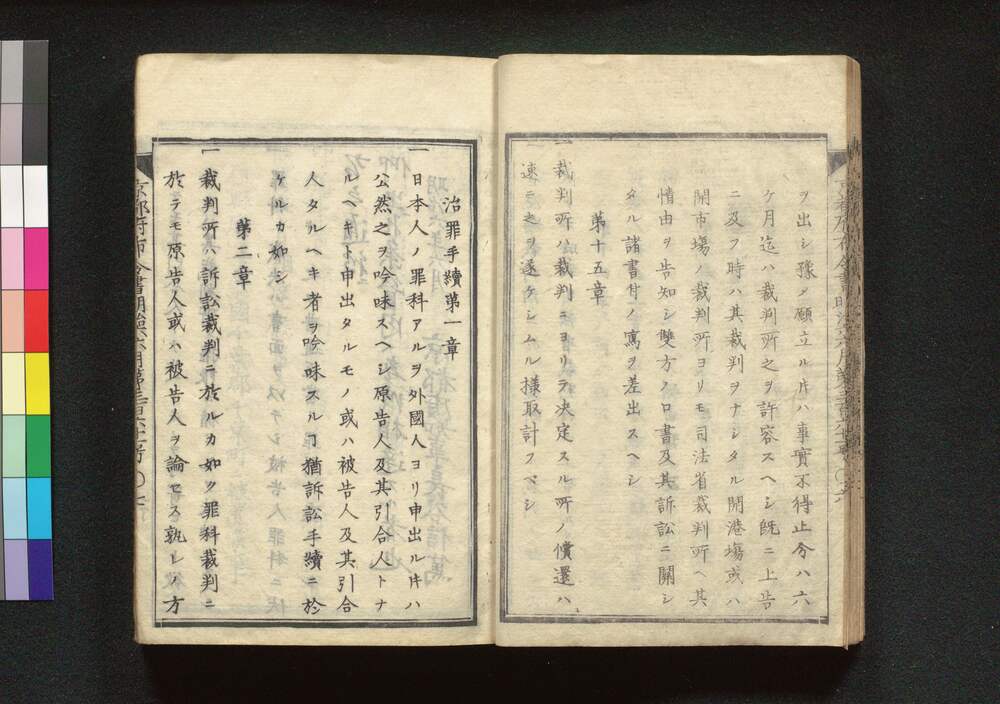 ヲ出シ豫メ願立ル𪜈ハ事實不得止分ハ六
ケ月迄ハ裁判所之ヲ許容スヘシ既ニ上告
ニ及フ時ハ其裁判ヲナシタル開港場或ハ
開市場ノ裁判所ヨリモ司法省裁判所ヘ其
情由ヲ告知シ雙方ノ口書及其訴訟ニ關シ
タル諸書付ノ寫ヲ差出スヘシ
第十五章
一裁判所ハ裁判ニヨリテ決定スル所ノ償還ハ
速ニ之ヲ遂ケシムル様取計フベシ
治罪手續第一章
一日本人ノ罪科アルヲ外國人ヨリ申出ル𪜈ハ
公然之ヲ吟味スヘシ原告人及其引合人トナ
ルヘキト申出タルモノ或ハ被告人及其引合
人タルヘキ者ヲ吟味スルヿ猶訴訟手續ニ於
ケルカ如シ
第二章
一裁判所ハ訴訟裁判ニ於ルカ如ク罪科裁判ニ
於テモ原告人或ハ被告人ヲ論セス孰レノ方
京都府布令書明治六年月第三百六十二号